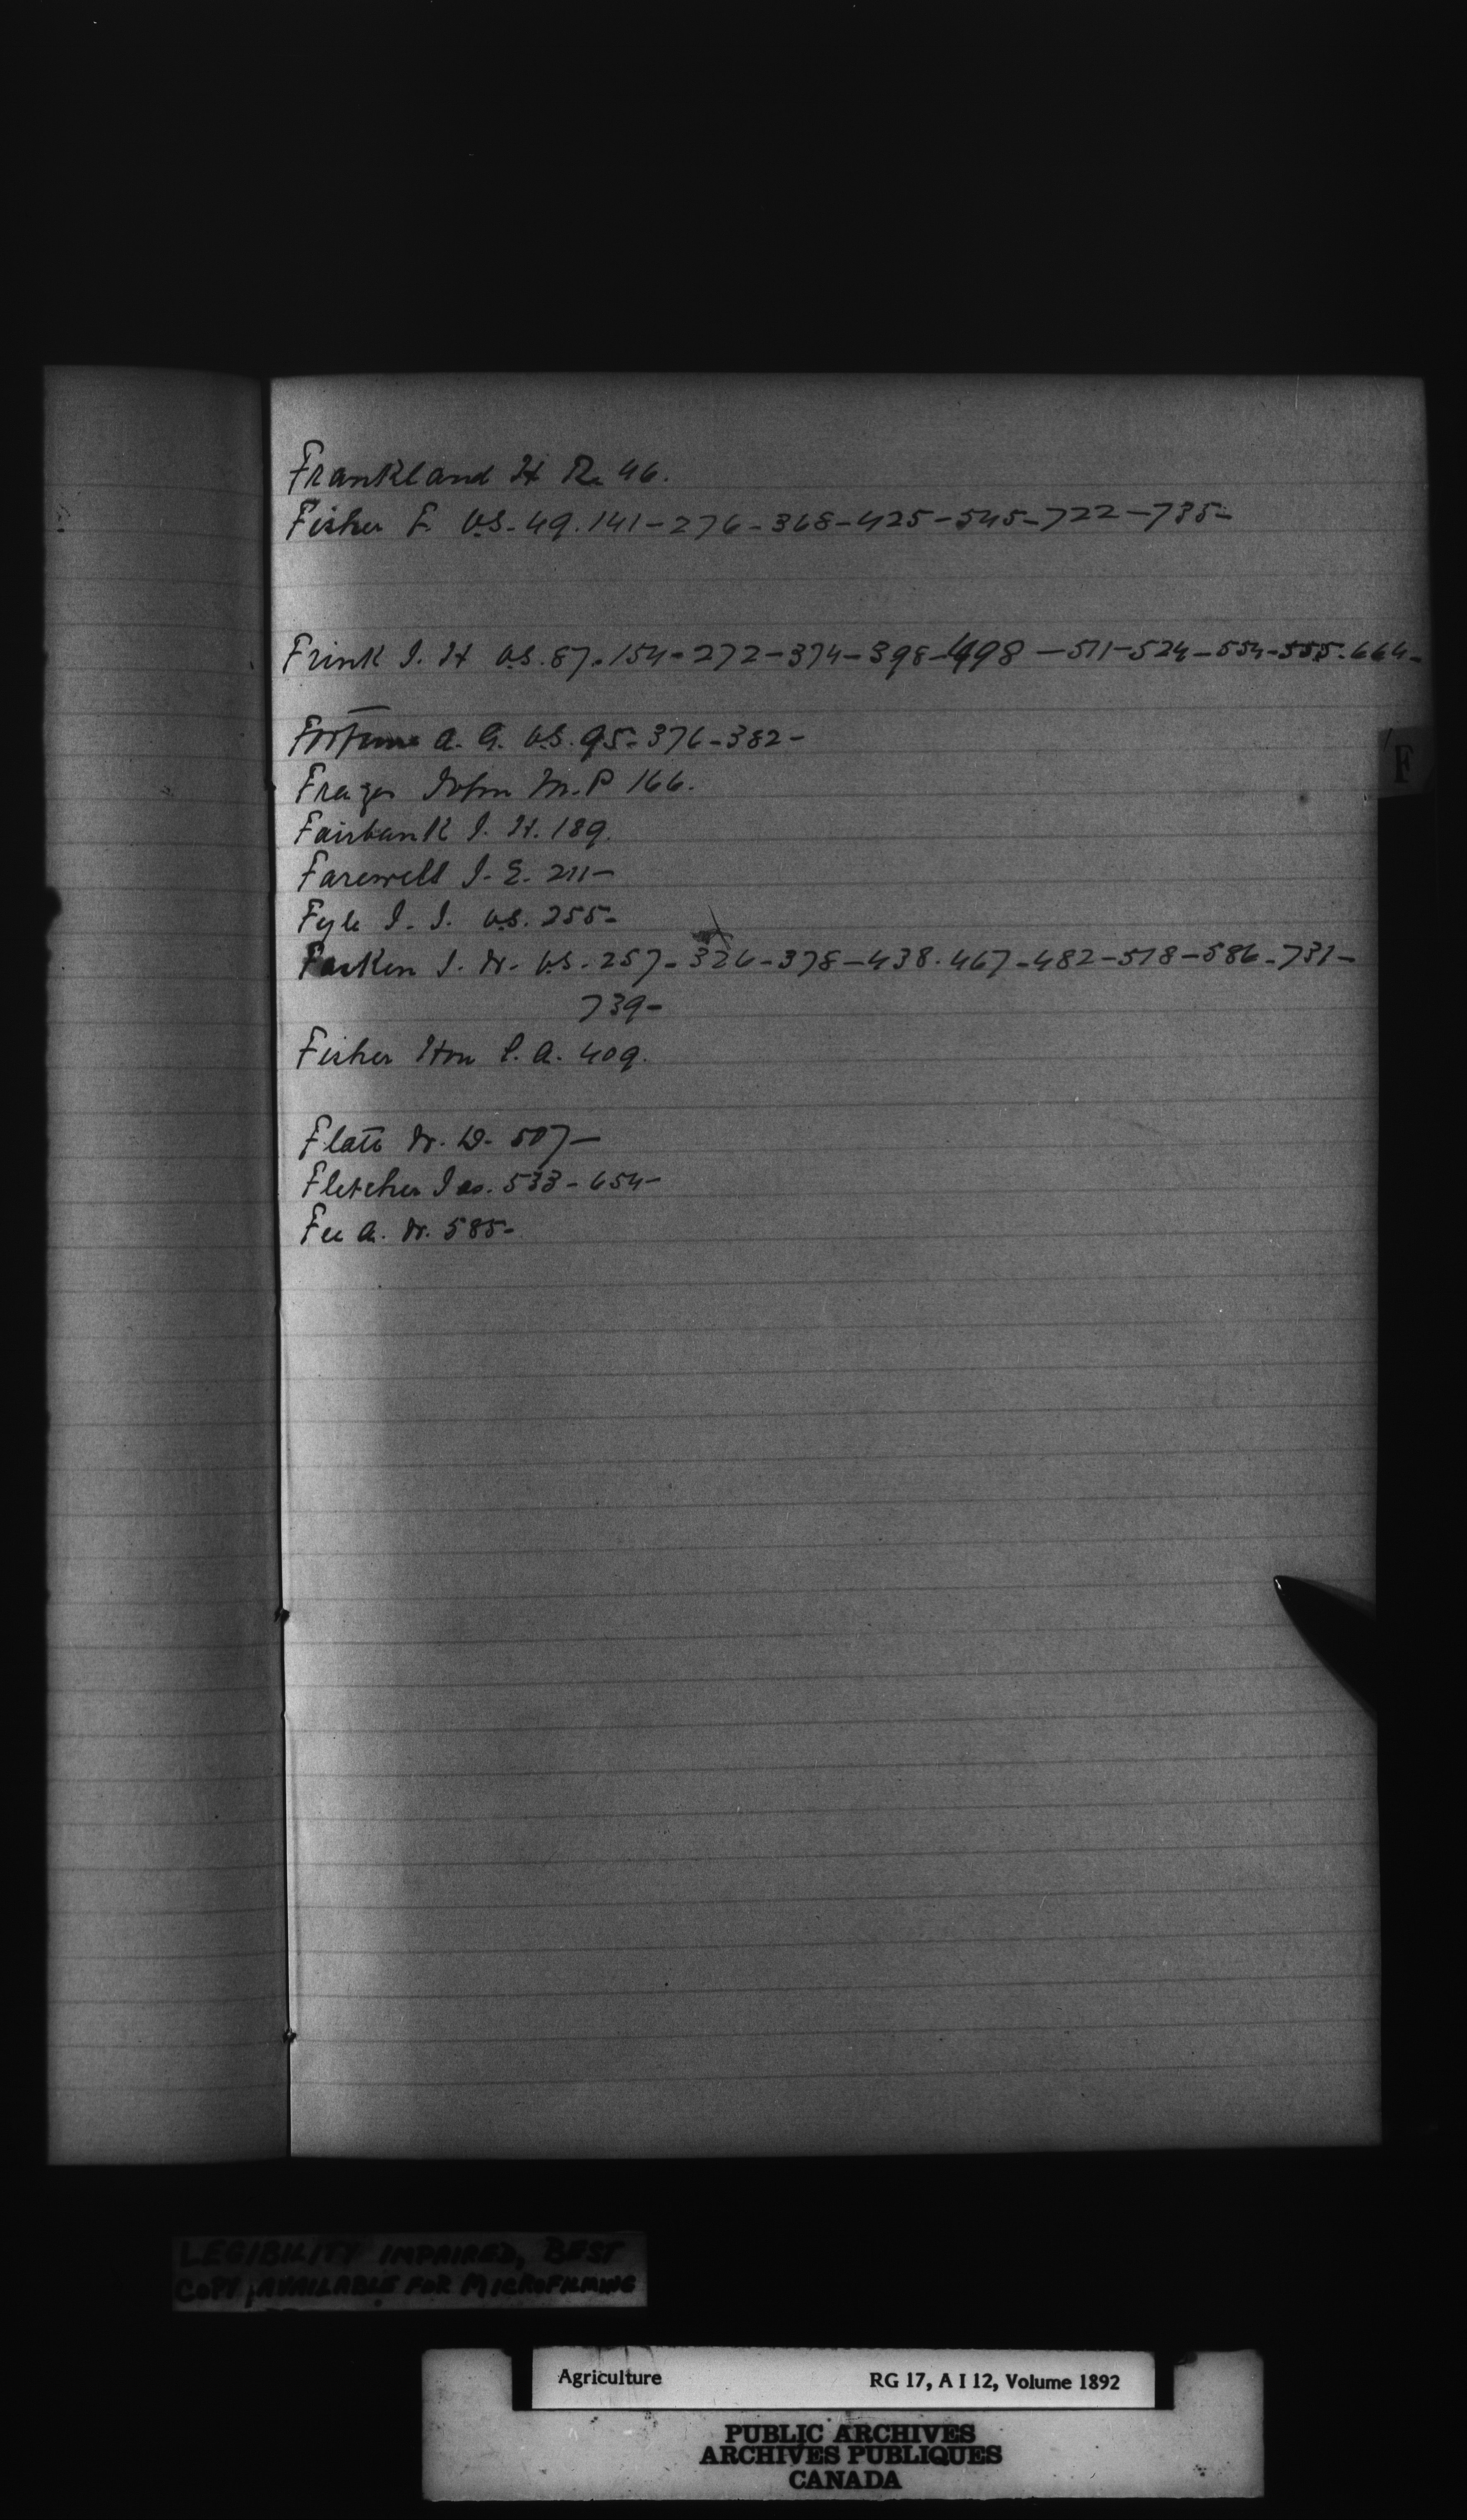 Frankland H R. 46.
Fisher F. V.S. 49. 141 - 276 - 368 - 425 - 545 - 722 - 735 -
Frink J. H V.S. 87. 154 - 272 - 374 - 398 - 498 - 511 - 524 - 554 - 555. 664 -
Fortune A. G. V.S. 95 - 376 - 382 -
F
Frazer John M.P 166.
Fairbank J. H. 189.
Farewell J. E. 211 -
Fyle J. J. V.S. 255 -
J. W. V.S. 257 - 326 - 378 - 438. 467 - 482 - 518 - 586 - 731 -
739 -
Fisher Hon S. A. 409.
Flatt W. D. 507 -
Fletcher Jas. 533 - 654 -
Fee A. W. 585 -
LEGIBILITY IMPAIRED, BEST
COPY AVAILABLE FOR MICROFILMING
Agriculture RG 17, A I 12, Volume 1892
PUBLIC ARCHIVES
ARCHIVES PUBLIQUES
CANADA